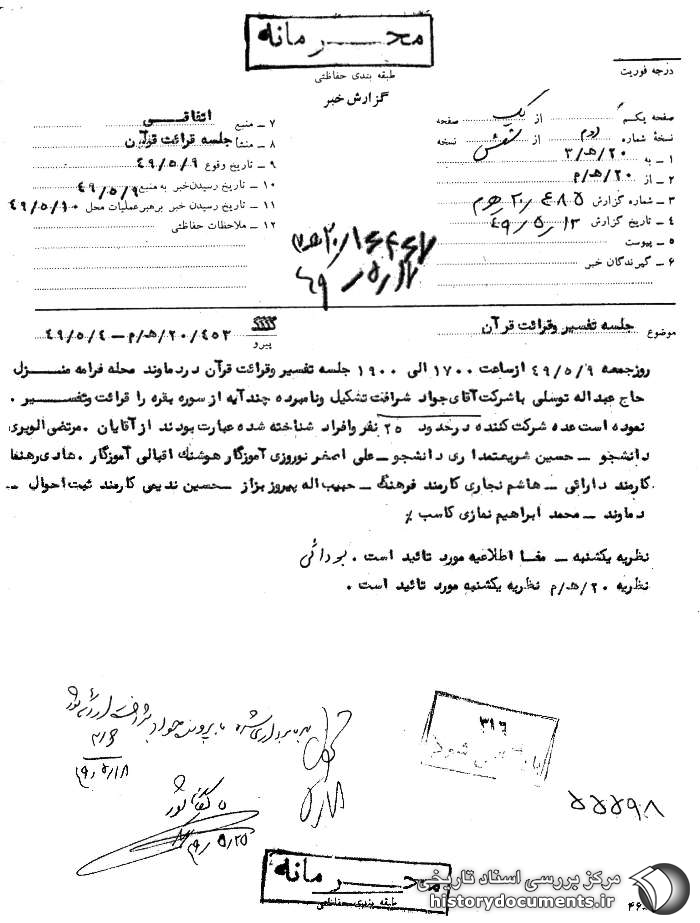 محرمانه
طبقه بندی حفاظتی
گزارش خبر
درجه فوریت
صفحه یکم از یک صفحه
نسخهٔ شماره دوم از شش نسخه
۱ ـ به ۲۰/ه‍/۳
۲ ـ از ۲۰/ه‍/م
۳ ـ شماره گزارش ۴۸۵/۲۰ه‍م
۴ ـ تاریخ گزارش ۴۹/۵/۱۳
۵ ـ پیوست
۶ ـ گیرندگان خبر
۷ ـ منبع اتفاقی
۸ ـ منشأ جلسه قرائت قرآن
۹ ـ تاریخ وقوع ۴۹/۵/۹
۱۰ ـ تاریخ رسیدن خبر به منبع ۴۹/۵/۹
۱۱ ـ تاریخ رسیدن خبر برهبر عملیات محل ۴۹/۵/۱۰
۱۲ ـ ملاحظات حفاظتی
موضوع جلسه تفسیر وقرائت قرآن
پیرو ۲۰/۴۵۳/ه‍/م ـ ۴۹/۵/۴
روزجمعه ۴۹/۵/۹ ازساعت ۱۷۰۰ الی ۱۹۰۰ جلسه تفسیر وقرائت قرآن دردماوند محله فرامه منزل
حاج عبداله توسلی باشرکت آقای جواد شرافت تشکیل ونامبرده چندآیه از سوره بقره را قرائت وتفسیر .
نموده است عده شرکت کننده درحدود ۲۵ نفر وافراد شناخته شده عبارت بودند از آقایان . مرتضی الویری
دانشجو ـ حسین شریعتمداری دانشجو ـ علی اصغر نوروزی آموزگار هوشنگ اقبالی آموزگار . هادی رهنما
کارمند دارائی ـ هاشم نجاری کارمند فرهنگ ـ حبیب اله پیروز بزاز ـ حسین ندیمی کارمند ثبت احوال ـ
دماوند ـ محمد ابراهیم نمازی کاسب ٪
نظریه یکشنبه ـ مفاد اطلاعیه مورد تائید است .
نظریه ۲۰/ه‍/م نظریه یکشنبه مورد تائید است .
۳۱۶
۴۹/۵/۱۸
۴۹/۵/۲۵
۵۵۵۹۸
محرمانه
طبقه بندی حفاظتی
مرکز بررسی اسناد تاریخی
historydocuments.ir